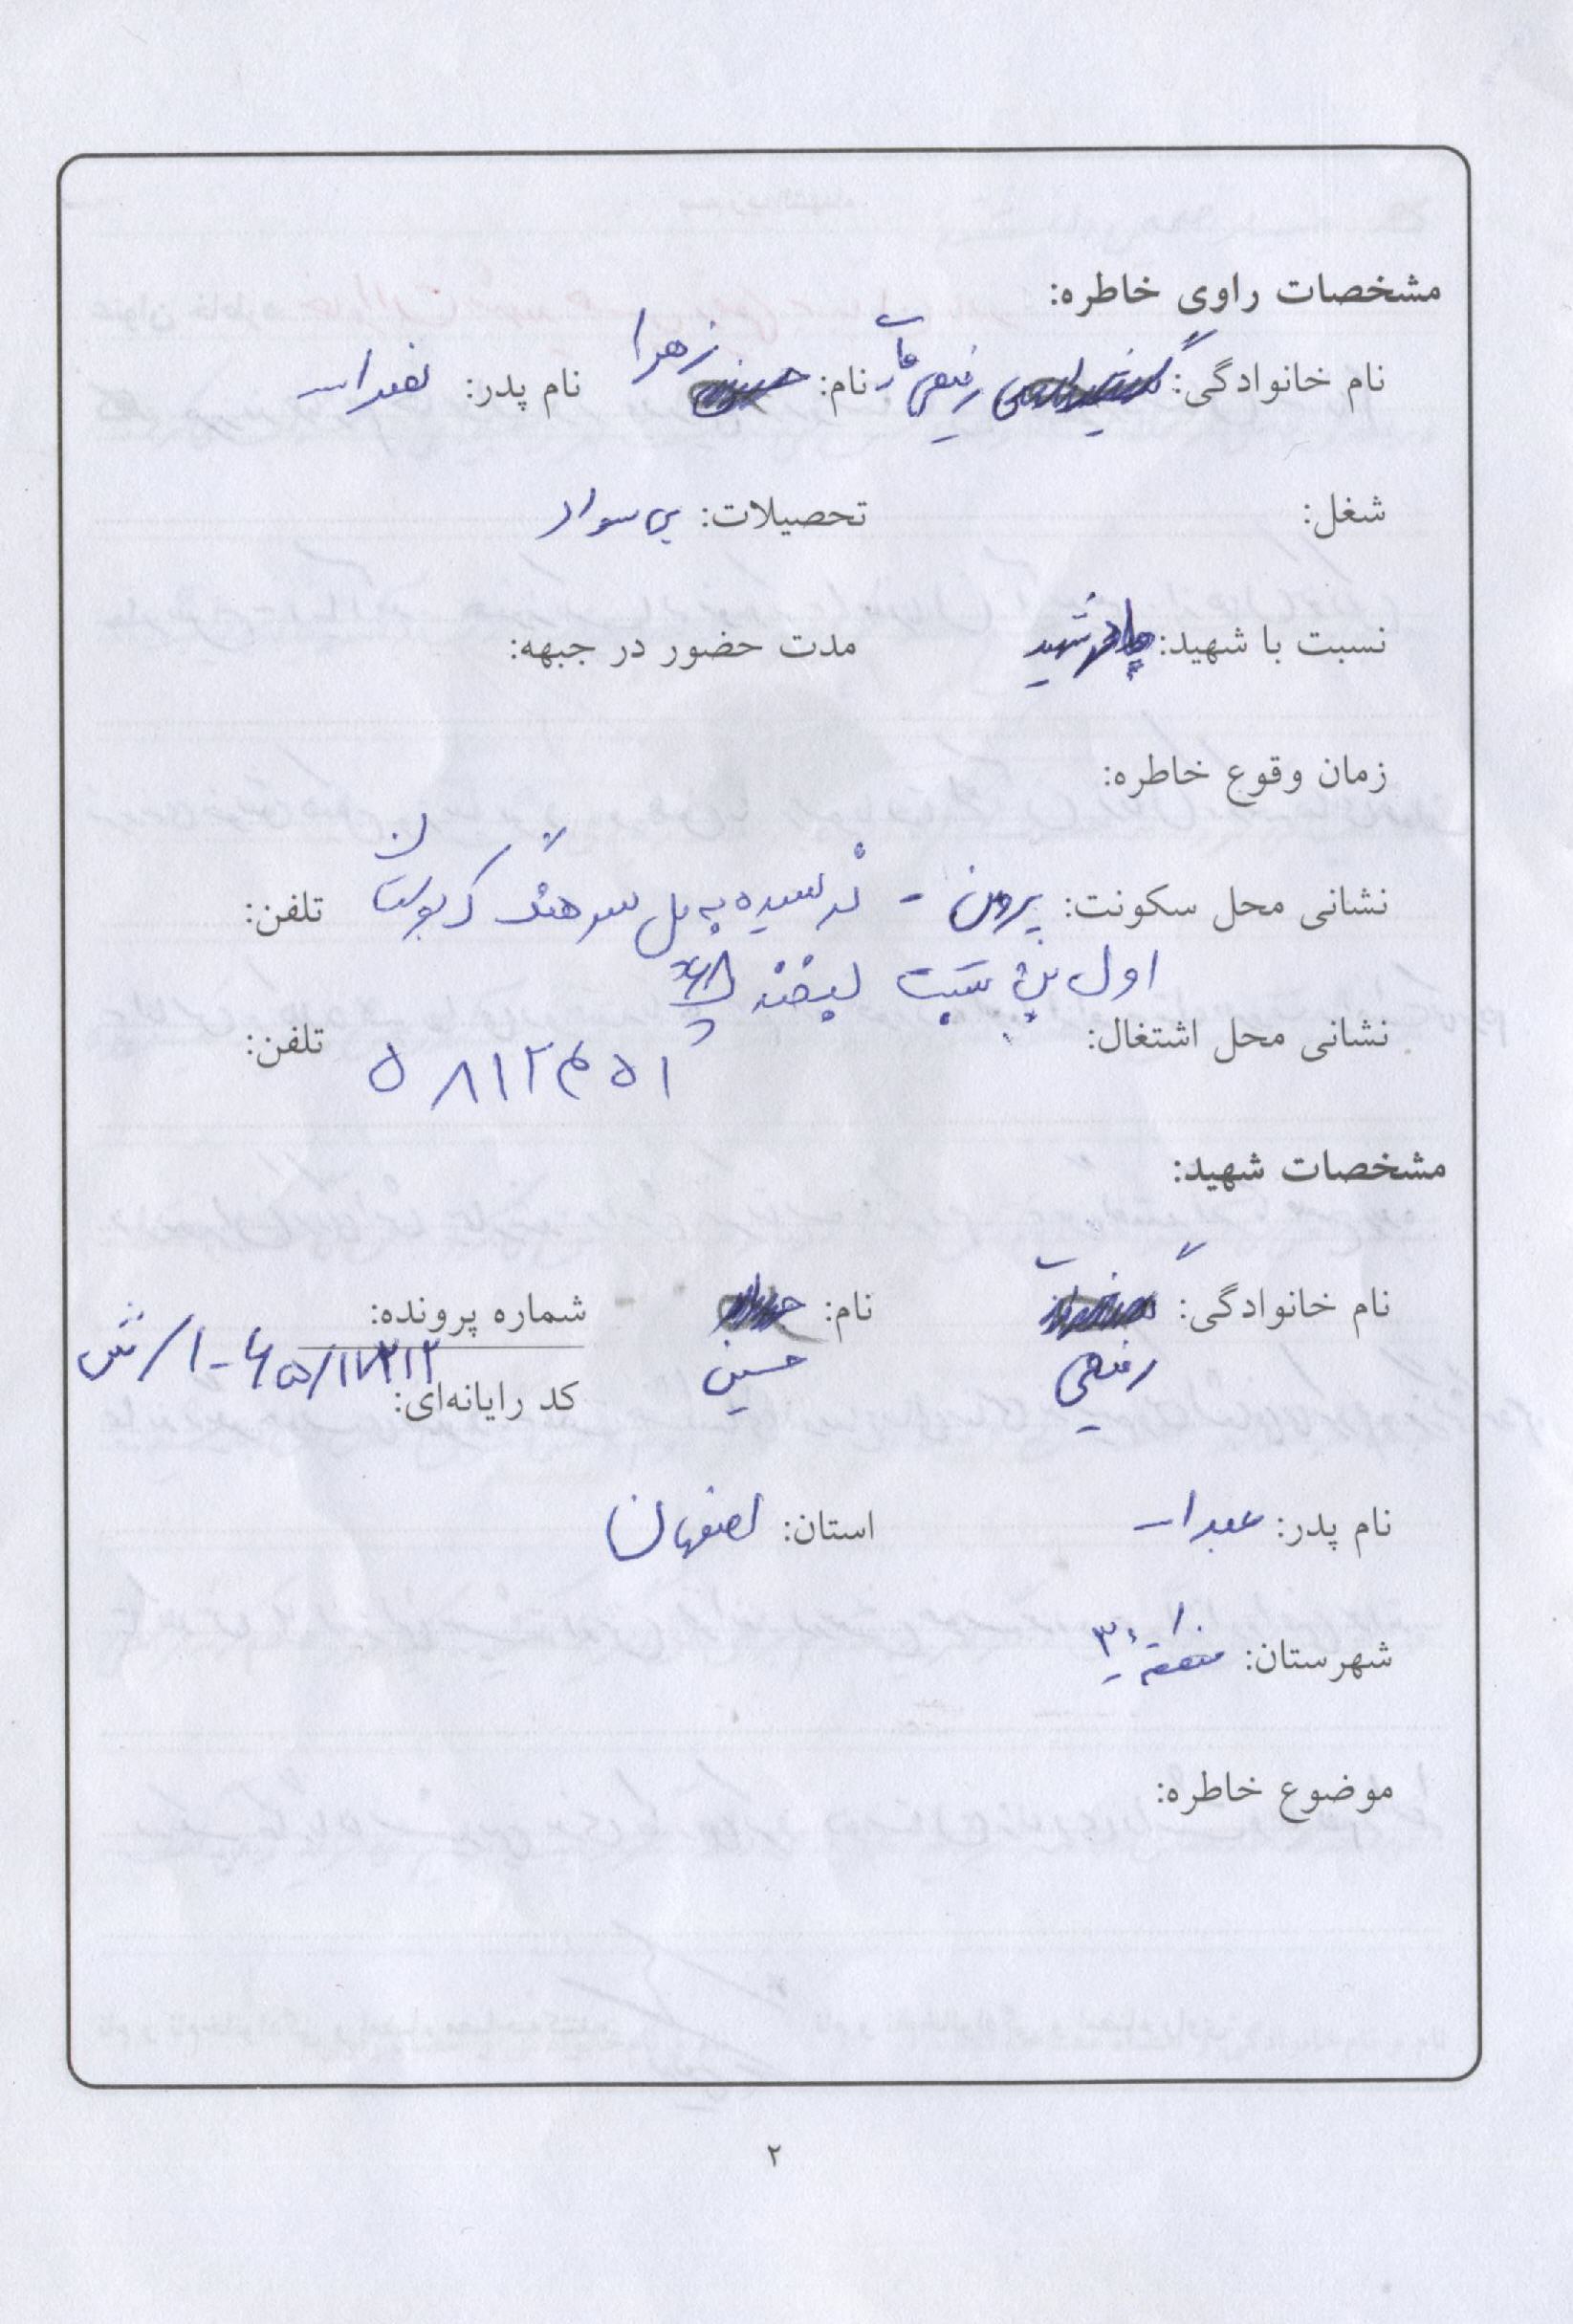 مشخصات راوی خاطره:
نام خانوادگی: رفیعی نام: زهرا نام پدر:
شغل: تحصیلات: بی سواد
نسبت با شهید: مادر شهید مدت حضور در جبهه:
زمان وقوع خاطره:
نشانی محل سکونت: پروین - نرسیده به پل سرهنگ کوی بوستان تلفن:
اول بن بست لبخند
نشانی محل اشتغال: تلفن:
مشخصات شهید:
نام خانوادگی: رفیعی نام: حسین شماره پرونده:
کد رایانه‌ای:
نام پدر: عبداله استان: اصفهان
شهرستان: منطقه ۳
موضوع خاطره:
۲